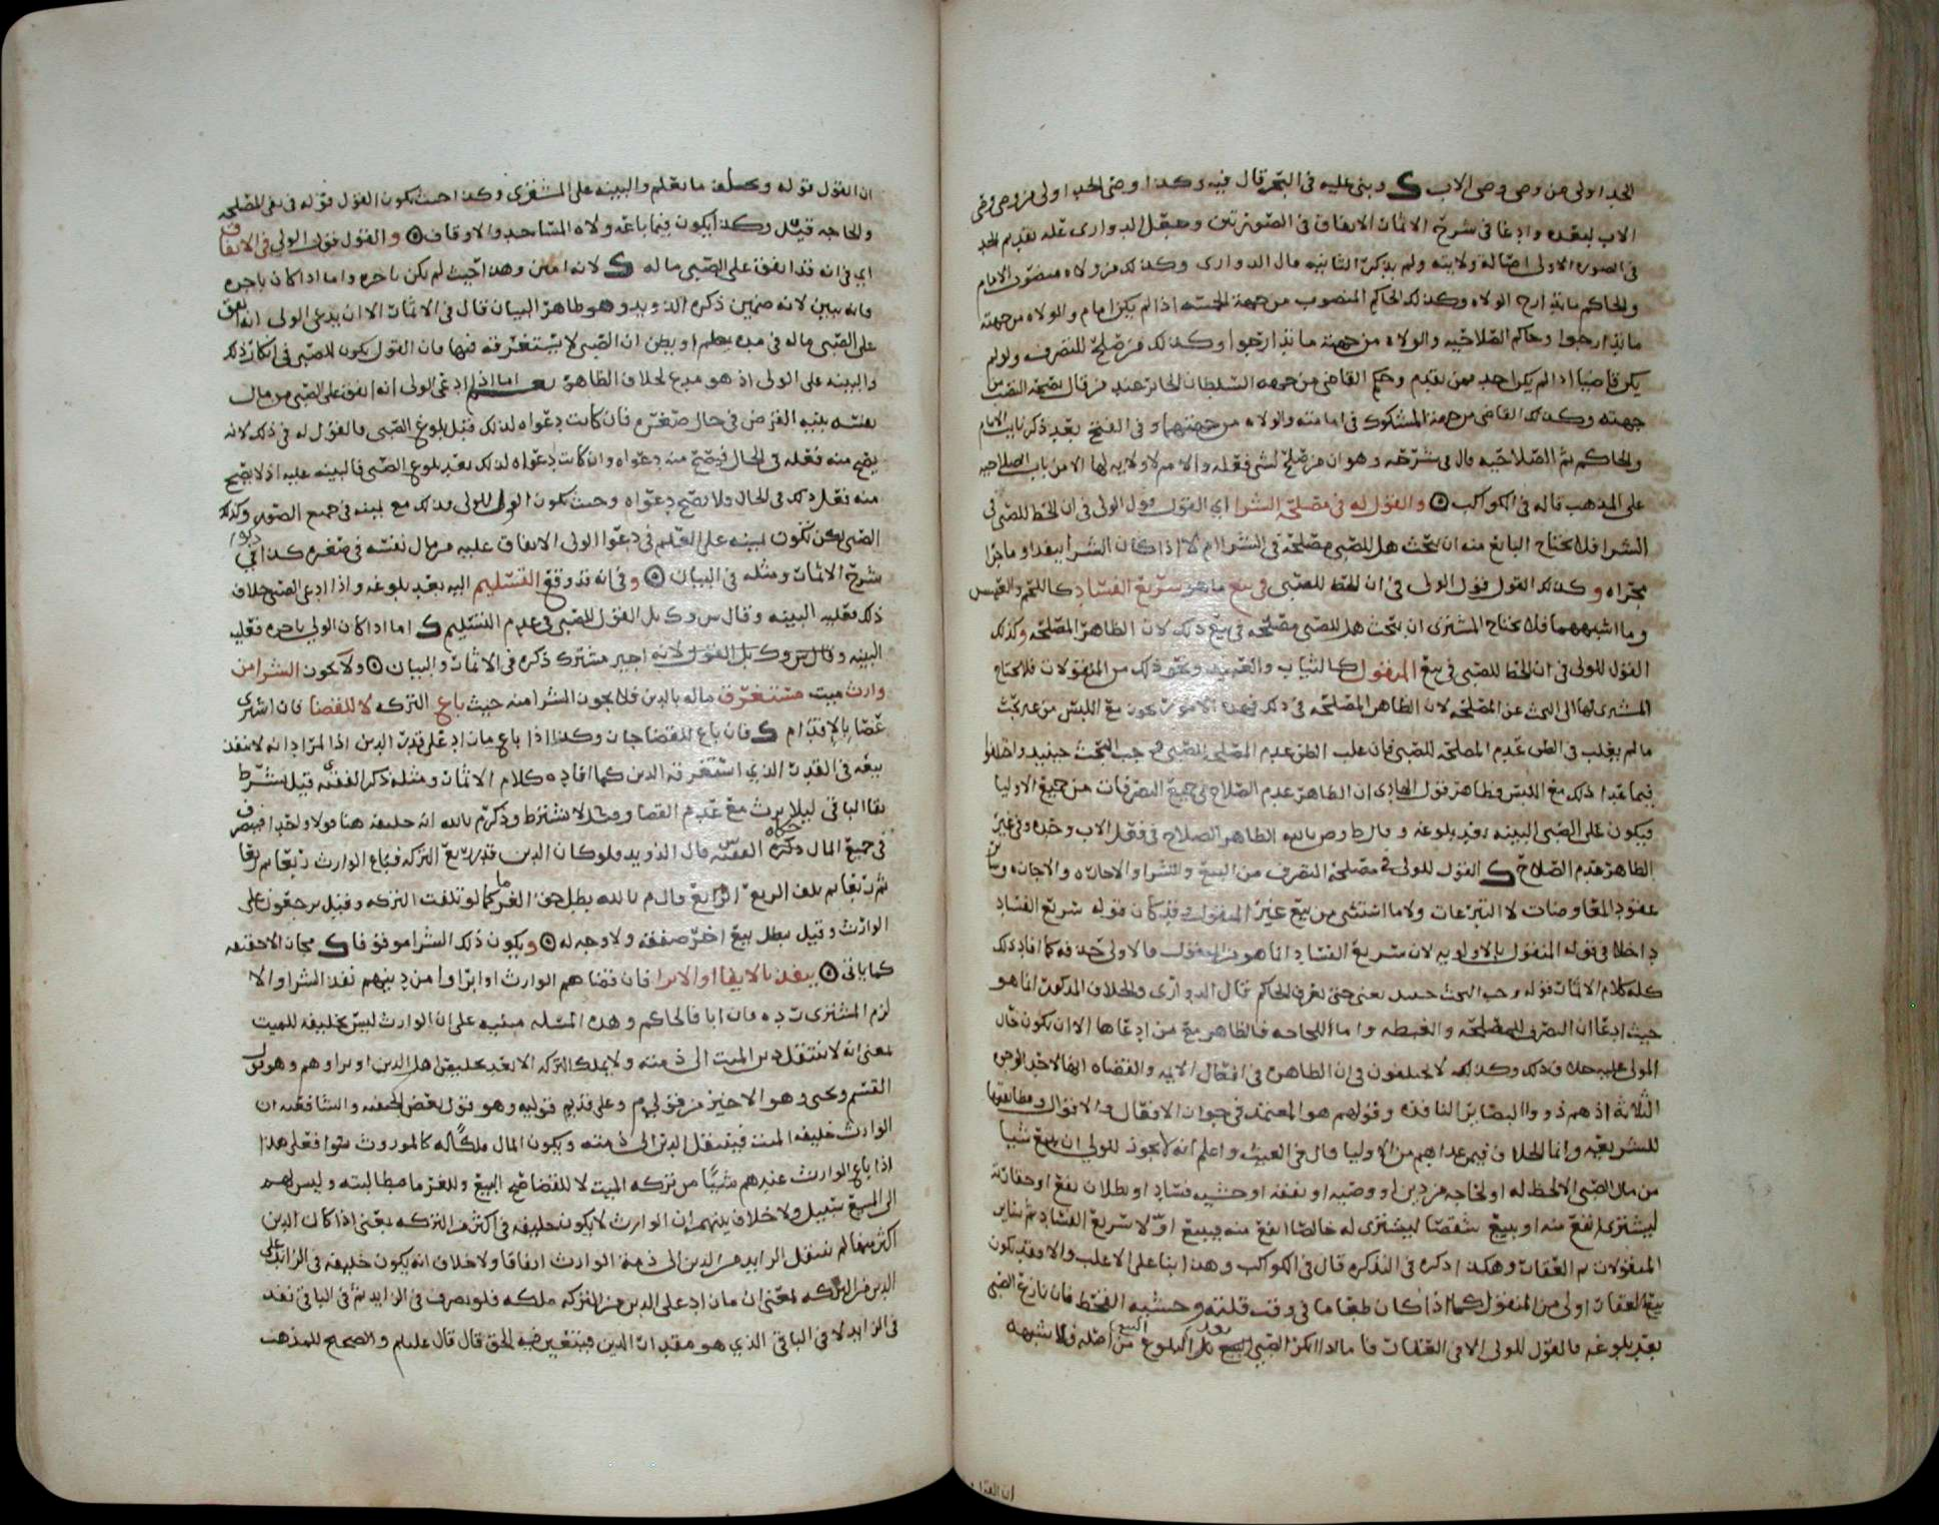 الجد اولى من وصي وصي الاب ك وبنى عليه في البحر قال فيه وكذا وصي الجد اولى من وصي وصي
الاب لبعده وادعا في شرح الاثمار الاتفاق في الصورتين وجعل الدواري عله تقديم الجد
في الصوره الاولى اصاله ولايته ولم يذكر الثانيه قال الدواري وكذلك من ولاه منصوب الامام
والحاكم ما تدارج الولاه وكذلك الحاكم المنصوب من جهة الخمسه اذا لم يكن امام والولاه من جهته
ما تدارجوا وحاكم الصلاحيه والولاه من جهته ما تدارجوا وكذلك من صلح للتصرف ولو لم
يكن قاضيا اذا لم يكن احد ممن تقدم وحكم القاضي من جهه السلطان الجائر عند من قال بصحة النصب من
جهته وكذلك القاضي من جهة المشكوك في امامته والولاه من جهتهما وفي الفتح بعد ذكر نايب الامام
والحاكم ثم الصلاحيه قال في شرحه وهو ان من صلح لشي فعله والام لا ولايه لها الا من باب الصلاحيه
على المذهب قاله في الكواكب ۞ والقول له في مصلحة الشرا اي القول قول الولي في ان الحظ للصبي في
الشرا فلا يحتاج البايع منه ان يبحث هل للصبي مصلحة في الشرا ام لا اذا كان الشرا بنقد او ما جرا
مجراه وكذلك القول قول الولي في ان الحظ للصبي في بيع ما هو سريع الفساد كاللحم والعنب
وما اشبههما فلا يحتاج المشتري ان يبحث هل للصبي مصلحه في بيع ذلك لان الظاهر المصلحه وكذلك
القول للولي في ان الحظ للصبي في بيع المنقول كالثياب والعبيد ونحو ذلك من المنقولات فلا يحتاج
المشتري لها الى البحث عن المصلحه لان الظاهر المصلحه في ذلك فهذه الامور يجوز مع اللبس من غير بحث
ما لم يغلب في الظن عدم المصلحه للصبي فان غلب الظن عدم المصلحه للصبي وجب البحث حينئذ واختلفوا
فيما عدا ذلك مع اللبس فظاهر قول الهادي ان الظاهر عدم الصلاح في جميع التصرفات من جميع الاوليا
فيكون على الصبي البينه بعد بلوغه وقال ط وص بالله الظاهر الصلاح في فعل الاب وحده وفي غيره
الظاهر عدم الصلاح ك القول للولي في مصلحة التصرف من البيع والشرا والاجاره والاجازه وساير
عقود المعاوضات لا التبرعات ولا ما استثني من بيع غير المنقول وقد كان قوله سريع الفساد
داخلا في قوله المنقول بالاولويه لان سريع الفساد انما هو من المنقول فالاولى حذفه كما افاد ذلك
كله كلام الاثمار قوله وجب البحث حينئذ يعني حتى يعرف الحاكم قال الدواري والخلاف المذكور انما هو
حيث ادعا ان التصرف للمصلحه والغبطه واما اللحاجه فالظاهر مع من ادعاها الا ان يكون حال
المولى عليه خلاف ذلك وكذلك لا يختلفون في ان الظاهر في افعال الايمه والقضاه انها لاحد الوجوه
الثلاثة اذ هم ذووا البصاير النافذه وقولهم هو المعتمد في جواز الافعال والاقوال ومطابقتها
للشريعه وانما الخلاف فيمن عداهم من الاوليا قال في الغيث واعلم انه لا يجوز للولي ان يبيع شيا
من مال الصبي الا لحظ له او لحاجه من دين او وصيه او نفقه او خشيه فساد او بطلان نفع او حقارة
ليشترى انفع منه او يبيع شقصا ليشترى له خالصا انفع منه فيبيع اولا سريع الفساد ثم ساير
المنقولات ثم العقار وهكذا ذكره في التذكره قال في الكواكب وهذا بنا على الاغلب والا فقد يكون
بيع العقار اولى من المنقول كما اذا كان طعاما في وقت قلته وخشيه القحط فان نازع الصبي
بعد بلوغه فالقول للولي الا في العقار فاما اذا انكر الصبي البيع قبل البلوغ من اصله فلا شبهه
ان القول
ان القول قوله ويحلف ما يعلم والبينه على المشتري وكذا حيث يكون القول قوله في نفي المصلحه
والحاجه قيل وكذا يكون فيما باعه ولاة المساجد والاوقاف ۞ والقول قول الولي في الانفاق
اي في انه قد انفق على الصبي ماله ك لانه امين وهذا حيث لم يكن باجره واما اذا كان باجره
فانه يبين لانه ضمين ذكره الذويد وهو ظاهر البيان قال في الاثمار الا ان يدعي الولي انه انفق
على الصبي ماله في مده يعلم او يظن ان الصبي لا يستغرقه فيها فان القول يكون للصبي في انكار ذلك
والبينه على الولي اذ هو مدع لخلاف الظاهر اما اذا ادعى الولي انه انفق على الصبي من مال
نفسه بنيه القرض في حال صغره فان كانت دعواه لذلك قبل بلوغ الصبي فالقول له في ذلك لانه
يصح منه فعله في الحال فيصح منه دعواه وان كانت دعواه لذلك بعد بلوغ الصبي فالبينه عليه اذ لا يصح
منه فعل ذلك في الحال فلا يصح دعواه وحيث يكون القول للولي فذلك مع يمينه في جميع الصور وكذلك
الصبي لكن تكون يمينه على العلم في دعوا الولي الانفاق عليه من مال نفسه في صغره كذا في
شرح الاثمار ومثله في البيان ۞ وفي انه قد وقع التسليم اليه بعد بلوغه واذا ادعى الصبي خلاف
ذلك فعليه البينه وقال س وك بل القول للصبي في عدم التسليم ك اما اذا كان الولي باجره فعليه
البينه وقال س وك بل القول لانه اجير مشترك ذكره في الاثمار والبيان ۞ ولا يجوز الشرا من
وارث ميت مستغرق ماله بالدين فلا يجوز الشرا منه حيث باع التركه لا للقضا فان اشترى
عصا بالاقدام ك فان باع للقضا جاز وكذا اذا باع ما زاد على قدر الدين اذا المراد انه لا ينفذ
بيعه في القدر الذي استغرقه الدين كما افاده كلام الاثمار ومثله ذكر الفقيه قيل بشرط
بقا الباقي ليلا يرث مع عدم القضا وقيل لا يشترط وذكر م بالله انه خليفه هنا قولا واحدا فيتصرف
في جميع المال ذكره الفقيه قال الذويد فلو كان الدين قدر ربع التركه فباع الوارث ربعا ثم ربعا
ثم ربعا ثم تلف الربع الرابع قال م بالله بطل حق الغرما كما لو تلفت التركه وقيل يرجعون على
الوارث وقيل يبطل بيع اخر صفقه ولا وجه له ۞ ويكون ذلك الشرا موقوفا ك مجازا لا حقيقه
كما ياتي ۞ ينفذ بالايفا او الابرا فان قضاهم الوارث او ابراوا من دينهم نفذ الشرا والا
لزم المشتري رده فان ابا فالحاكم وهذه المسله مبنيه على ان الوارث ليس بخليفه للميت
بمعنى انه لا ينتقل دين الميت الى ذمته ولا يملك التركه الا بعد تخليص اهل الدين او براوهم وهو قول
القسم ويحيى وهو الاخير من قولي م وعلى قديم قوليه وهو قول بعض الحنفيه والشافعيه ان
الوارث خليفه الميت فينتقل الدين الى ذمته ويكون المال ملكا له كالموروث سوا فعلى هذا
اذا باع الوارث عندهم شيا من تركه الميت لا للقضا صح البيع وللغرما مطالبته وليس لهم
الى المبيع سبيل ولا خلاف بينهم ان الوارث لا يكون خليفه في اكثر من التركه يعني اذا كان الدين
اكثر منها لم ينتقل الزايد من الدين الى ذمة الوارث اتفاقا ولا خلاف انه يكون خليفه في الزايد على
الدين من التركه بمعنى ان ما زاد على الدين من التركه ملكه فلو تصرف في الزايد ثم في الباقي نفذ
في الزايد لا في الباقي الذي هو مقدار الدين فيتعين فيه الحق قال قال عليلم والصحيح للمذهب